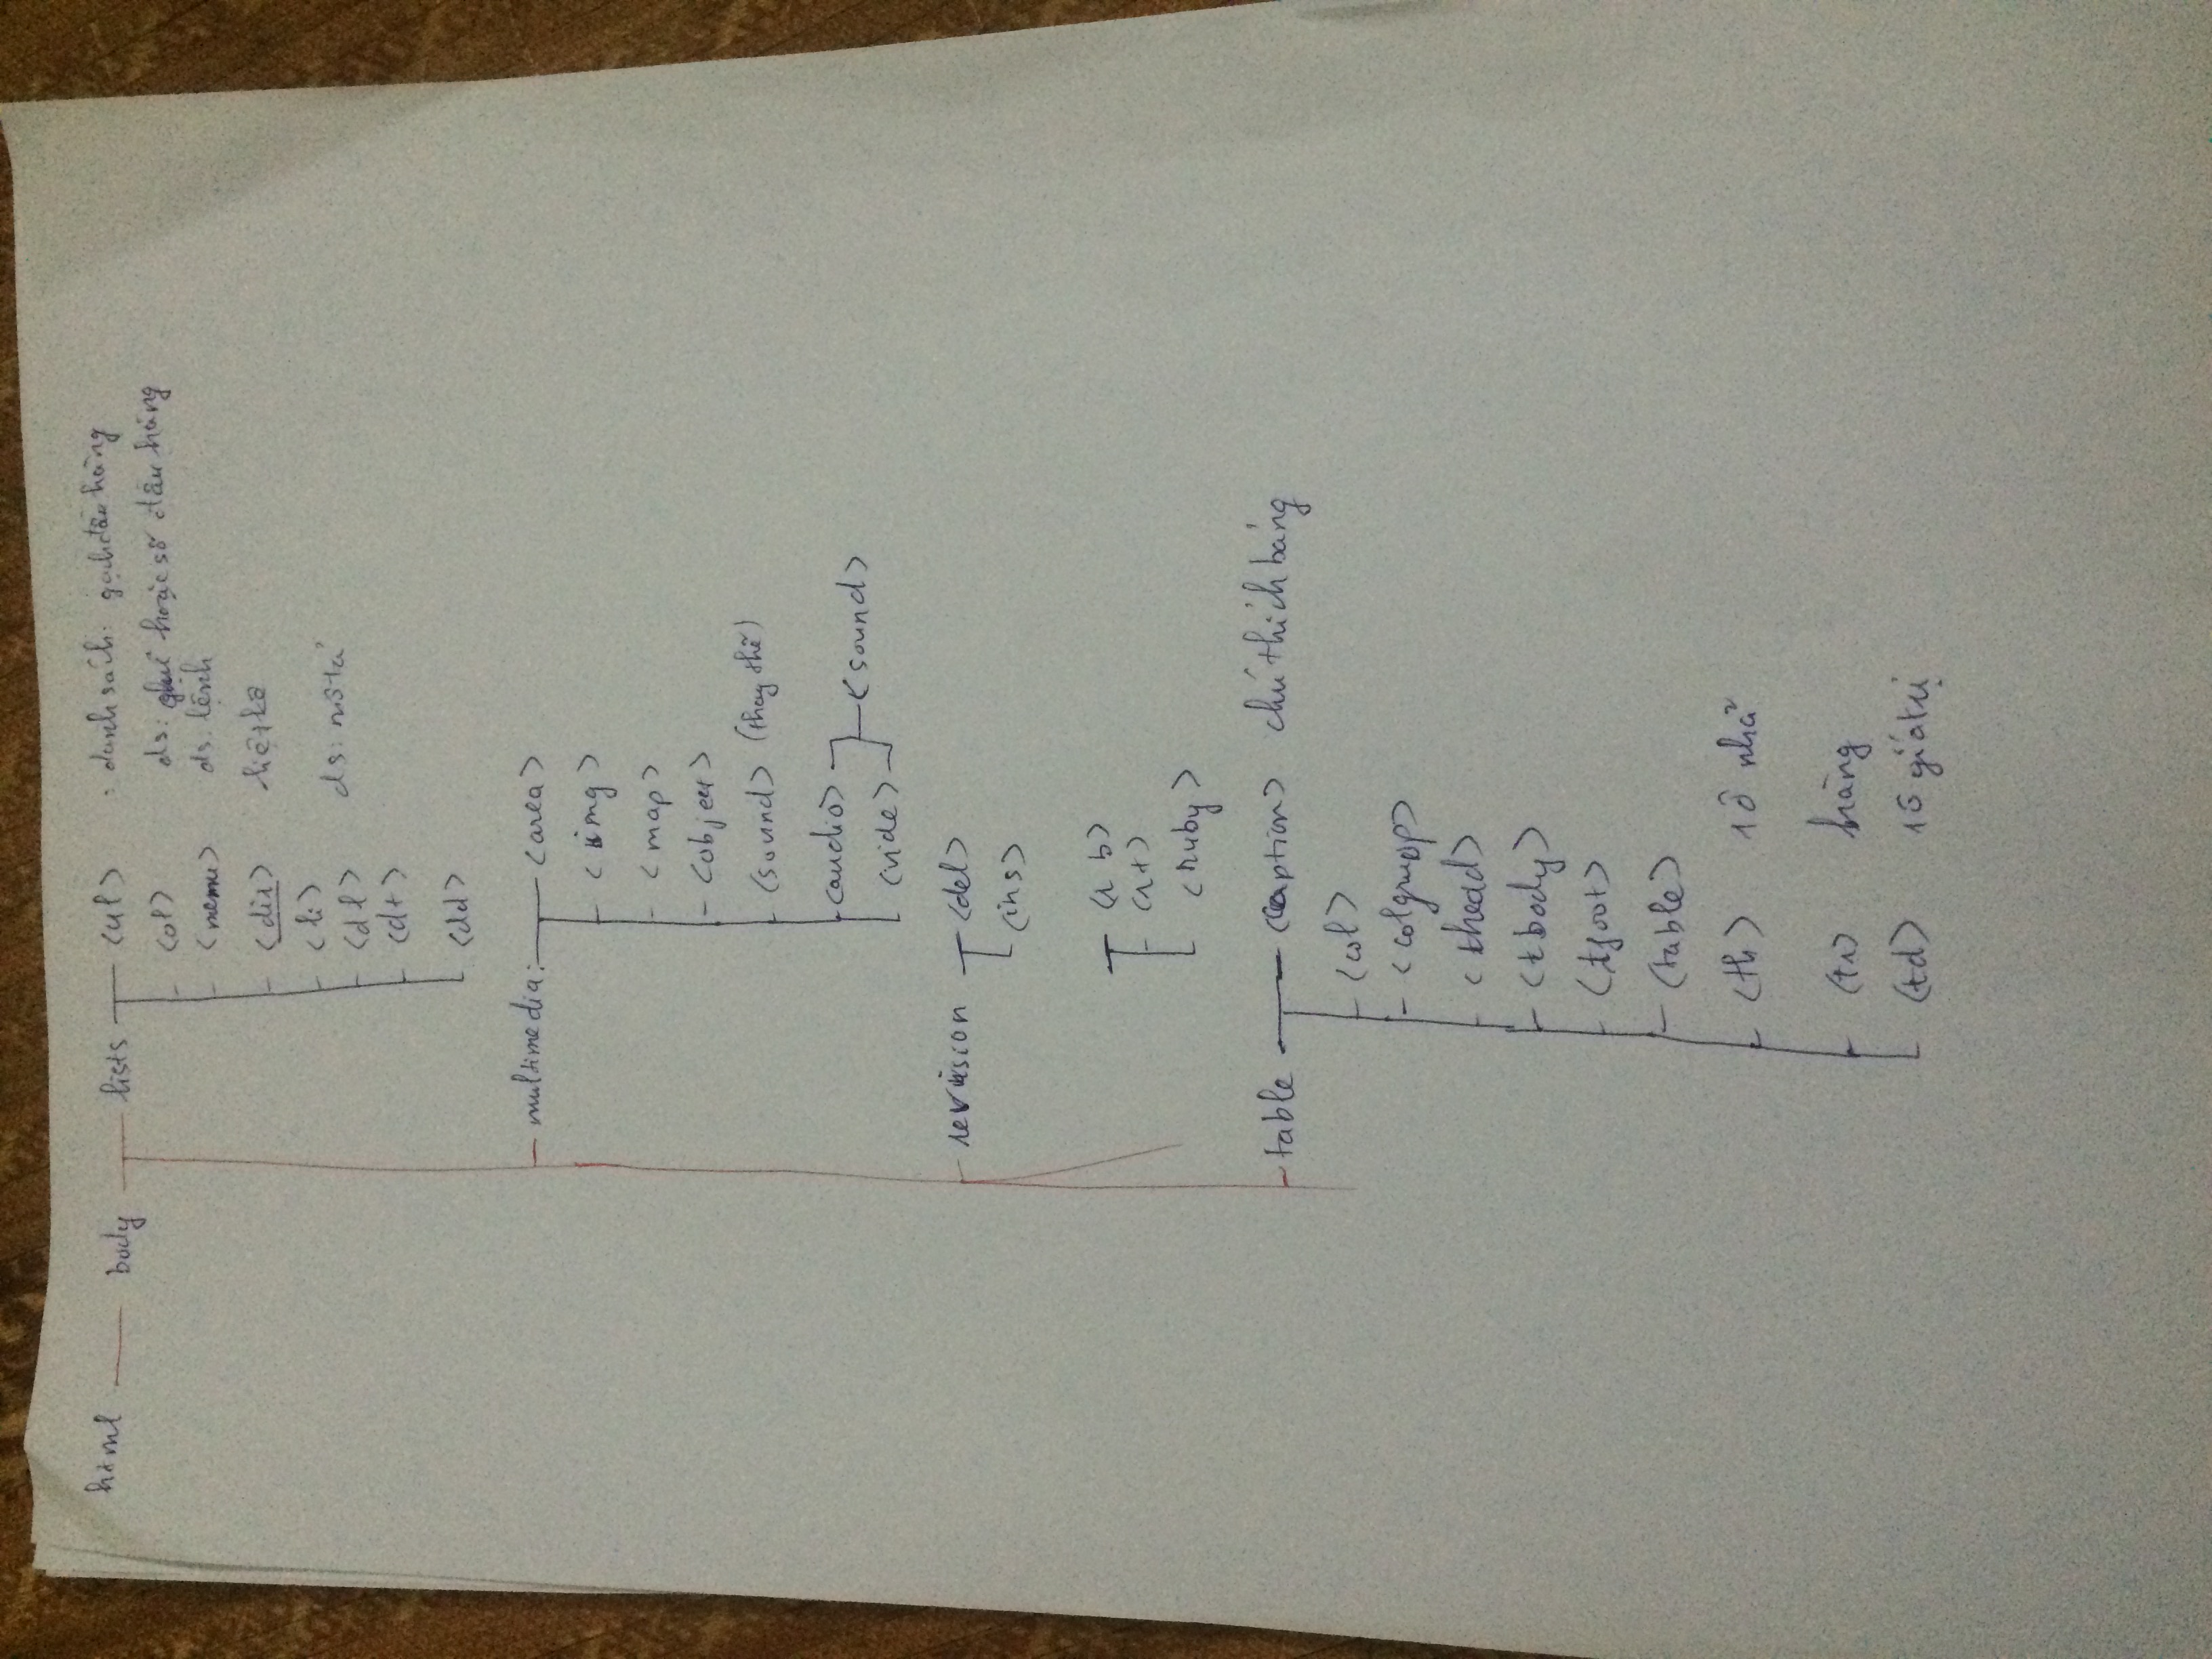 html body lists <ul> : danh sách: gạch đầu hàng
<ol> ds: hoặc số đầu hàng
<menu> ds. lệnh
<dir> liệt kê
<li>
<dl> ds: mô tả
<dt>
<dd>
multimedia: <area>
<img>
<map>
<object>
<sound> (thay thế)
<audio> <sound>
<vide>
revision <del>
<ins>
<rb>
<rt>
<ruby>
table <caption> chú thích bảng
<col>
<colgruop>
<thead>
<tbody>
<tfoot>
<table>
<th> 1 ô nhã
<tr> hàng
<td> 1 ô giá trị